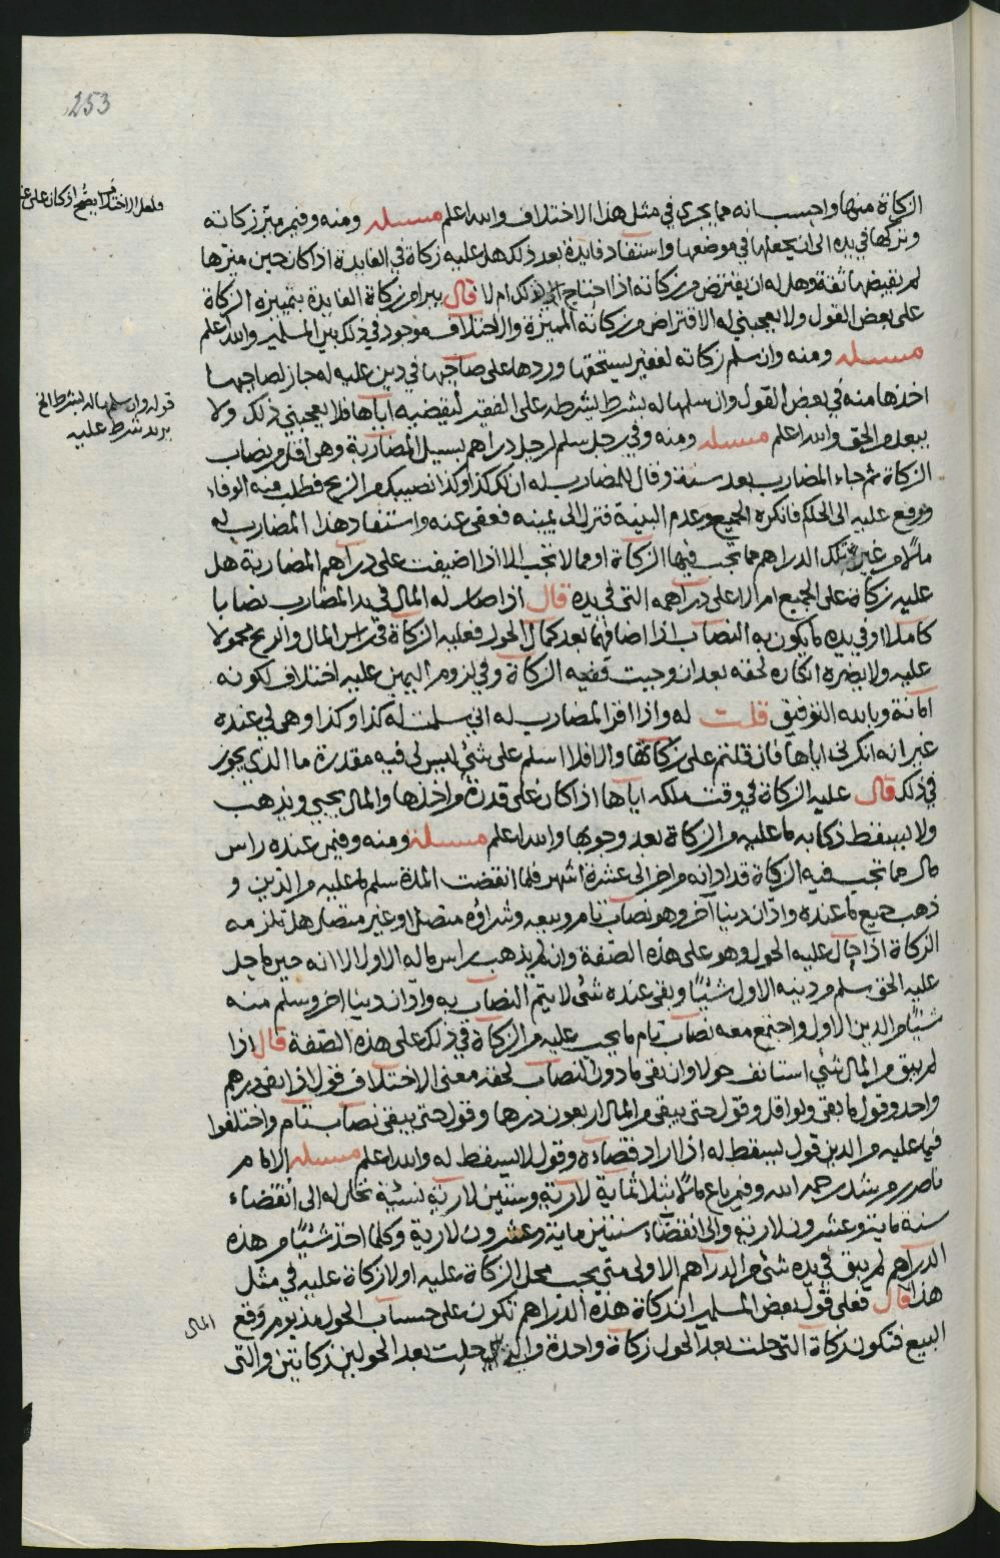 253
الزكاة منها واحسب انه مما يجري في مثل هذا الاختلاف والله اعلم مسئلة ومنه وفيمن ميّز زكاته
وتركها في يده الى ان يجعلها في موضعها واستفاد فايدة بعد ذلك هل عليه زكاة في الفايدة اذا كان حين ميزها
لم يقبضها ثقة وهل له ان يقترض من زكاته اذا احتاج الى ذلك ام لا قال يبرا من زكاة الفايدة بتمييزه الزكاة
على بعض القول ولا يعجبني له الاقتراض من زكاته المميزة والاختلاف موجود في ذلك بين المسلمين والله اعلم
مسئلة ومنه وان سلم زكاته لفقير يستحقها وردها على صاحبها في دين عليه له جاز لصاحبها
اخذها منه في بعض القول وان سلمها له بشرط يشرطه على الفقير ليقضيه اياها فلا يعجبني ذلك ولا
يبعد من الحق والله اعلم مسئلة ومنه وفي رجل سلم لرجل دراهم بسبيل المضاربة وهي اقل من نصاب
الزكاة ثم جاء المضارب بعد سنة وقال للمضارب له ان لك كذا وكذا نصيبك من الربح فطلب منه الوفاء
ورفع عليه الى الحاكم فانكره الجميع وعدم البينة فنزل الى يمينه فعفى عنه واستفاد هذا المضارب له
مالا من غير تلك الدراهم مما تجب فيها الزكاة او مما لا تجب الا اذا اضيفت على دراهم المضاربة هل
عليه زكاة على الجميع ام الا على دراهمه التي في يده قال اذا صار له المال في يد المضارب نصابا
كاملا او في يده ما يكون به النصاب اذا اضافهما بعد كمال الحول فعليه الزكاة في راس المال والربح محمولا
عليه ولا يضره انكاره لحقه بعد ان وجبت فيه الزكاة وفي لزوم اليمين عليه اختلاف لكونه
امانة وبالله التوفيق قلت له واذا اقر المضارب له اني سلمت له كذا وكذا وهي لي عنده
غير انه انكرني اياها فان قلتم على زكاتها والا فلا اسلم على شئ ليس لي فيه مقدرة ما الذي يجوز
في ذلك قال عليه الزكاة في وقت ملكه اياها اذا كان على قدرة من اخذها والمال يجيئ ويذهب
ولا يسقط ذهابه ما عليه من الزكاة بعد وجوبها والله اعلم مسئلة ومنه وفيمن عنده راس
مال مما تجب فيه الزكاة قد ادانه من اخر الى عشرة اشهر فلما انقضت المدة سلم ما عليه من الدين و
ذهب جميع ما عنده وادّان دينا آخر وهو نصاب تام وبيعه وشراؤه متصل او غير متصل هل تلزمه
الزكاة اذا حال عليه الحول وهو على هذه الصّفة وان لم يذهب راس ماله الاول الا انه حين ما حل
عليه الحق سلم من دينه الاول شيئًا وبقى عنده شئ لا يتم النصاب به وادّان دينا اخر وسلم منه
شيئًا من الدين الاول واجتمع معه نصاب تام ما يجب عليه من الزكاة في ذلك على هذه الصّفة قال اذا
لم يبق من المال شئ استانف حولا وان بقى ما دون النصاب لحقه معنى الاختلاف قول اذا بقى درهم
واحد وقول ما بقى ولو اقل وقول حتى يبقى من المال اربعون درهما وقول حتى يبقى نصاب تام واختلفوا
فيما عليه من الدين قول يسقط له اذا اراد قضاءه وقول لا يسقط له والله اعلم مسئلة الامام
ناصر بن مرشد رحمه الله وفيمن باع مالا بثلاثماية لارية وستين لارية نسئية تحل له الى انقضاء
سنة ماية وعشرون لارية والى انقضاء سنتين ماية وعشرون لارية وكلما اخذ شيئًا من هذه
الدراهم لم يبق في يده شئ من الدراهم الاولى متى يجب محل الزكاة عليه اولا زكاة عليه في مثل
هذا قال فعلى قول بعض المسلمين ان زكاة هذه الدراهم تكون على حساب الحول مذ يوم وقع
البيع فتكون زكاة التي حلت بعد الحول زكاة واحدة والتي حلت بعد الحولين زكاتين والتي
ولعل الاختلاف يصح اذ كان على
قوله وان سلمها له بشرط الخ
يريد شرط عليه
المال